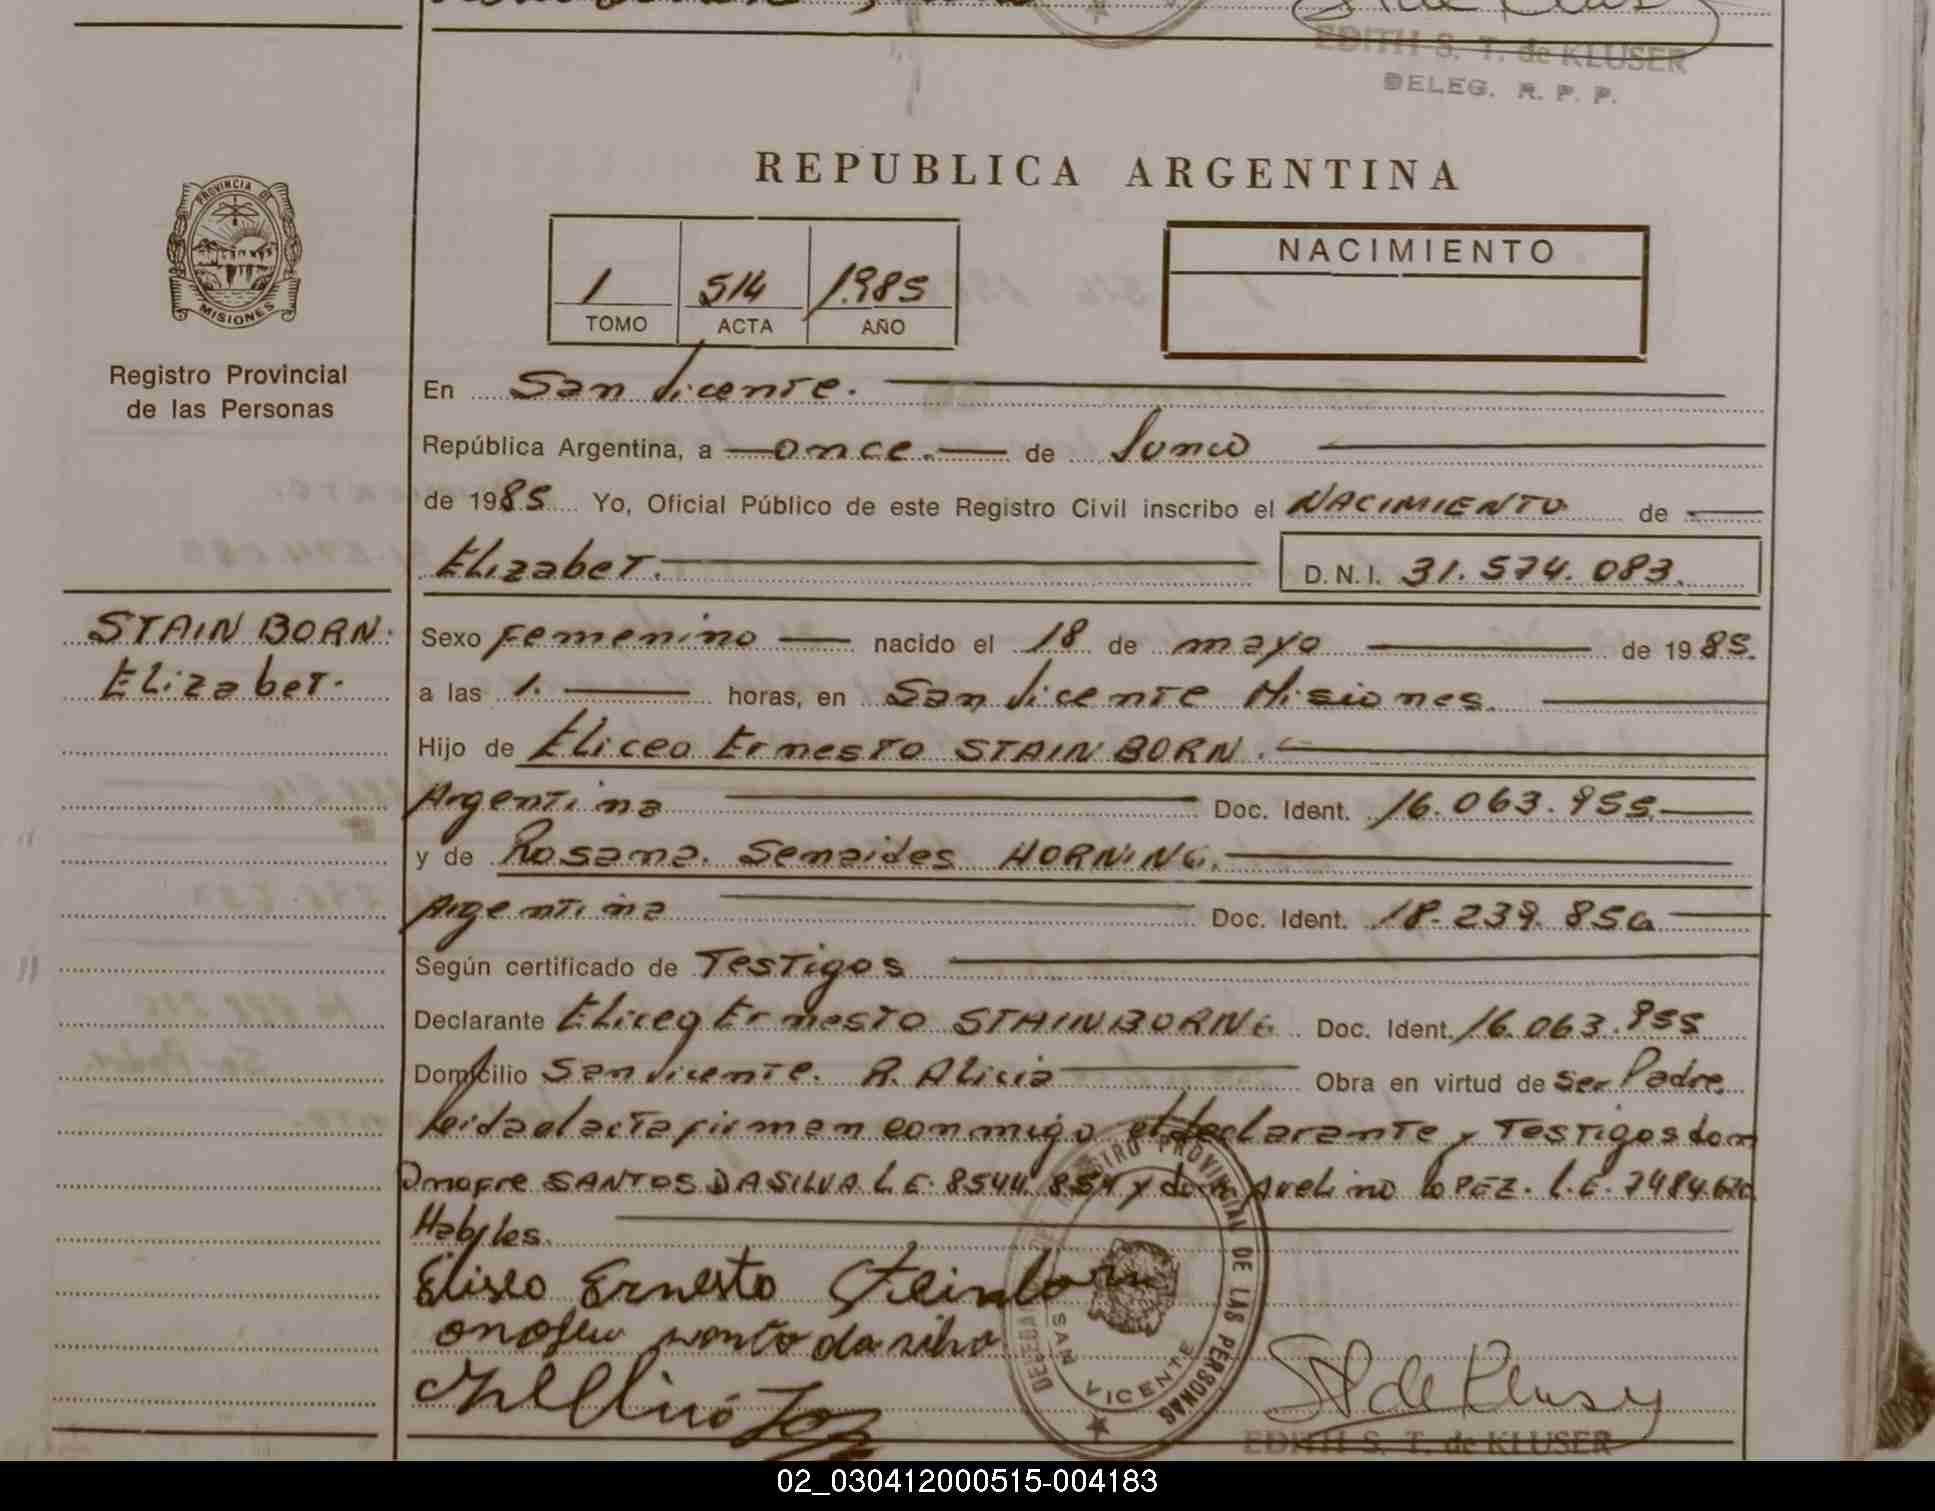 EDITH S. T. de KLUSER
DELEG. R. P. P.
REPUBLICA ARGENTINA
PROVINCIA DE
MISIONES
Registro Provincial
de las Personas
1 514 1985
TOMO ACTA AÑO
NACIMIENTO
En San Vicente.
República Argentina, a once. de Junio
de 1985 Yo, Oficial Público de este Registro Civil inscribo el NACIMIENTO de
Elizabet. D. N. I. 31.574.083.
STAIN BORN.
Elizabet.
Sexo Femenino nacido el 18 de mayo de 1985.
a las 1. horas, en San Vicente Misiones.
Hijo de Eliceo Ernesto STAIN BORN.
Argentina Doc. Ident. 16.063.955
y de Rosana. Senaides HORNING.
Argentina Doc. Ident. 18.239.856
Según certificado de Testigos
Declarante Eliceo Ernesto STAINBORN Doc. Ident. 16.063.955
Domicilio San Vicente. A. Alicia Obra en virtud de ser Padre
leida el acta firman conmigo el declarante y Testigos don
Onofre SANTOS DASILVA L.E. 8544.854 y don Avelino LOPEZ. L.E. 7484.620
Habiles.
Eliseo Ernesto Steinborn
onofre santo da silva
REGISTRO PROVINCIAL DE LAS PERSONAS
SAN VICENTE
EDITH S. T. de KLUSER
02_030412000515-004183